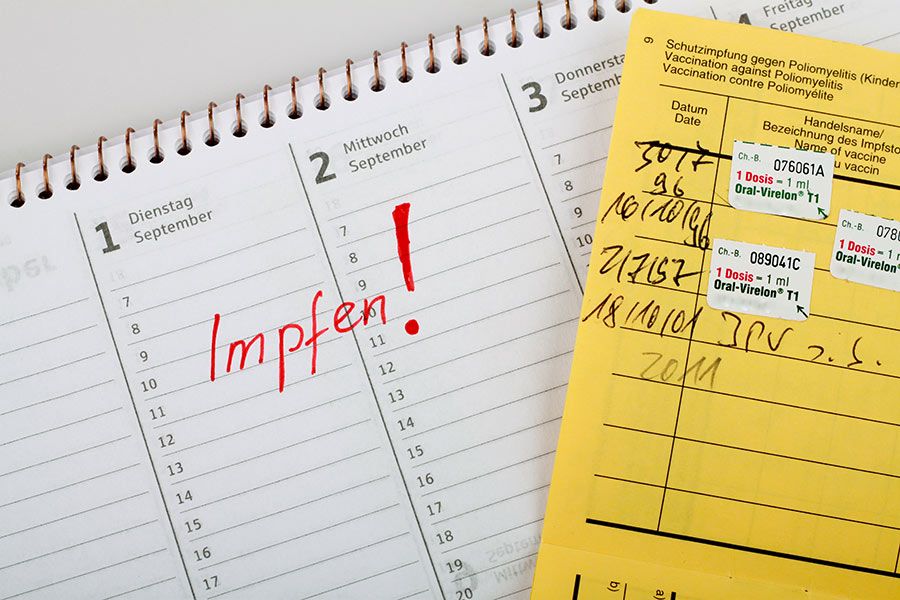 1 Dienstag
September
7
8
9
10
11
12
13
14
15
16
17
2 Mittwoch
September
7
8
9
10
11
12
13
14
15
16
17
18
19
20
3 Donnerstag
September
7
8
9
10
4 Freitag
September
Impfen!
6
Schutzimpfung gegen Poliomyelitis (Kinder
Vaccination against Poliomyelitis
Vaccination contre Poliomyélite
Datum
Date
Handelsname/
Bezeichnung des Impfsto
Name of vaccine
u vaccin
96
Ch.-B. 076061A
1 Dosis = 1 ml
Oral-Virelon® T1
16/10/96
Ch.-B. 078
1 Dosis = 1 m
Oral-Virelon®
Ch.-B. 089041C
1 Dosis = 1 ml
Oral-Virelon® T1
18/10/01 IPV
2011
b)
a)